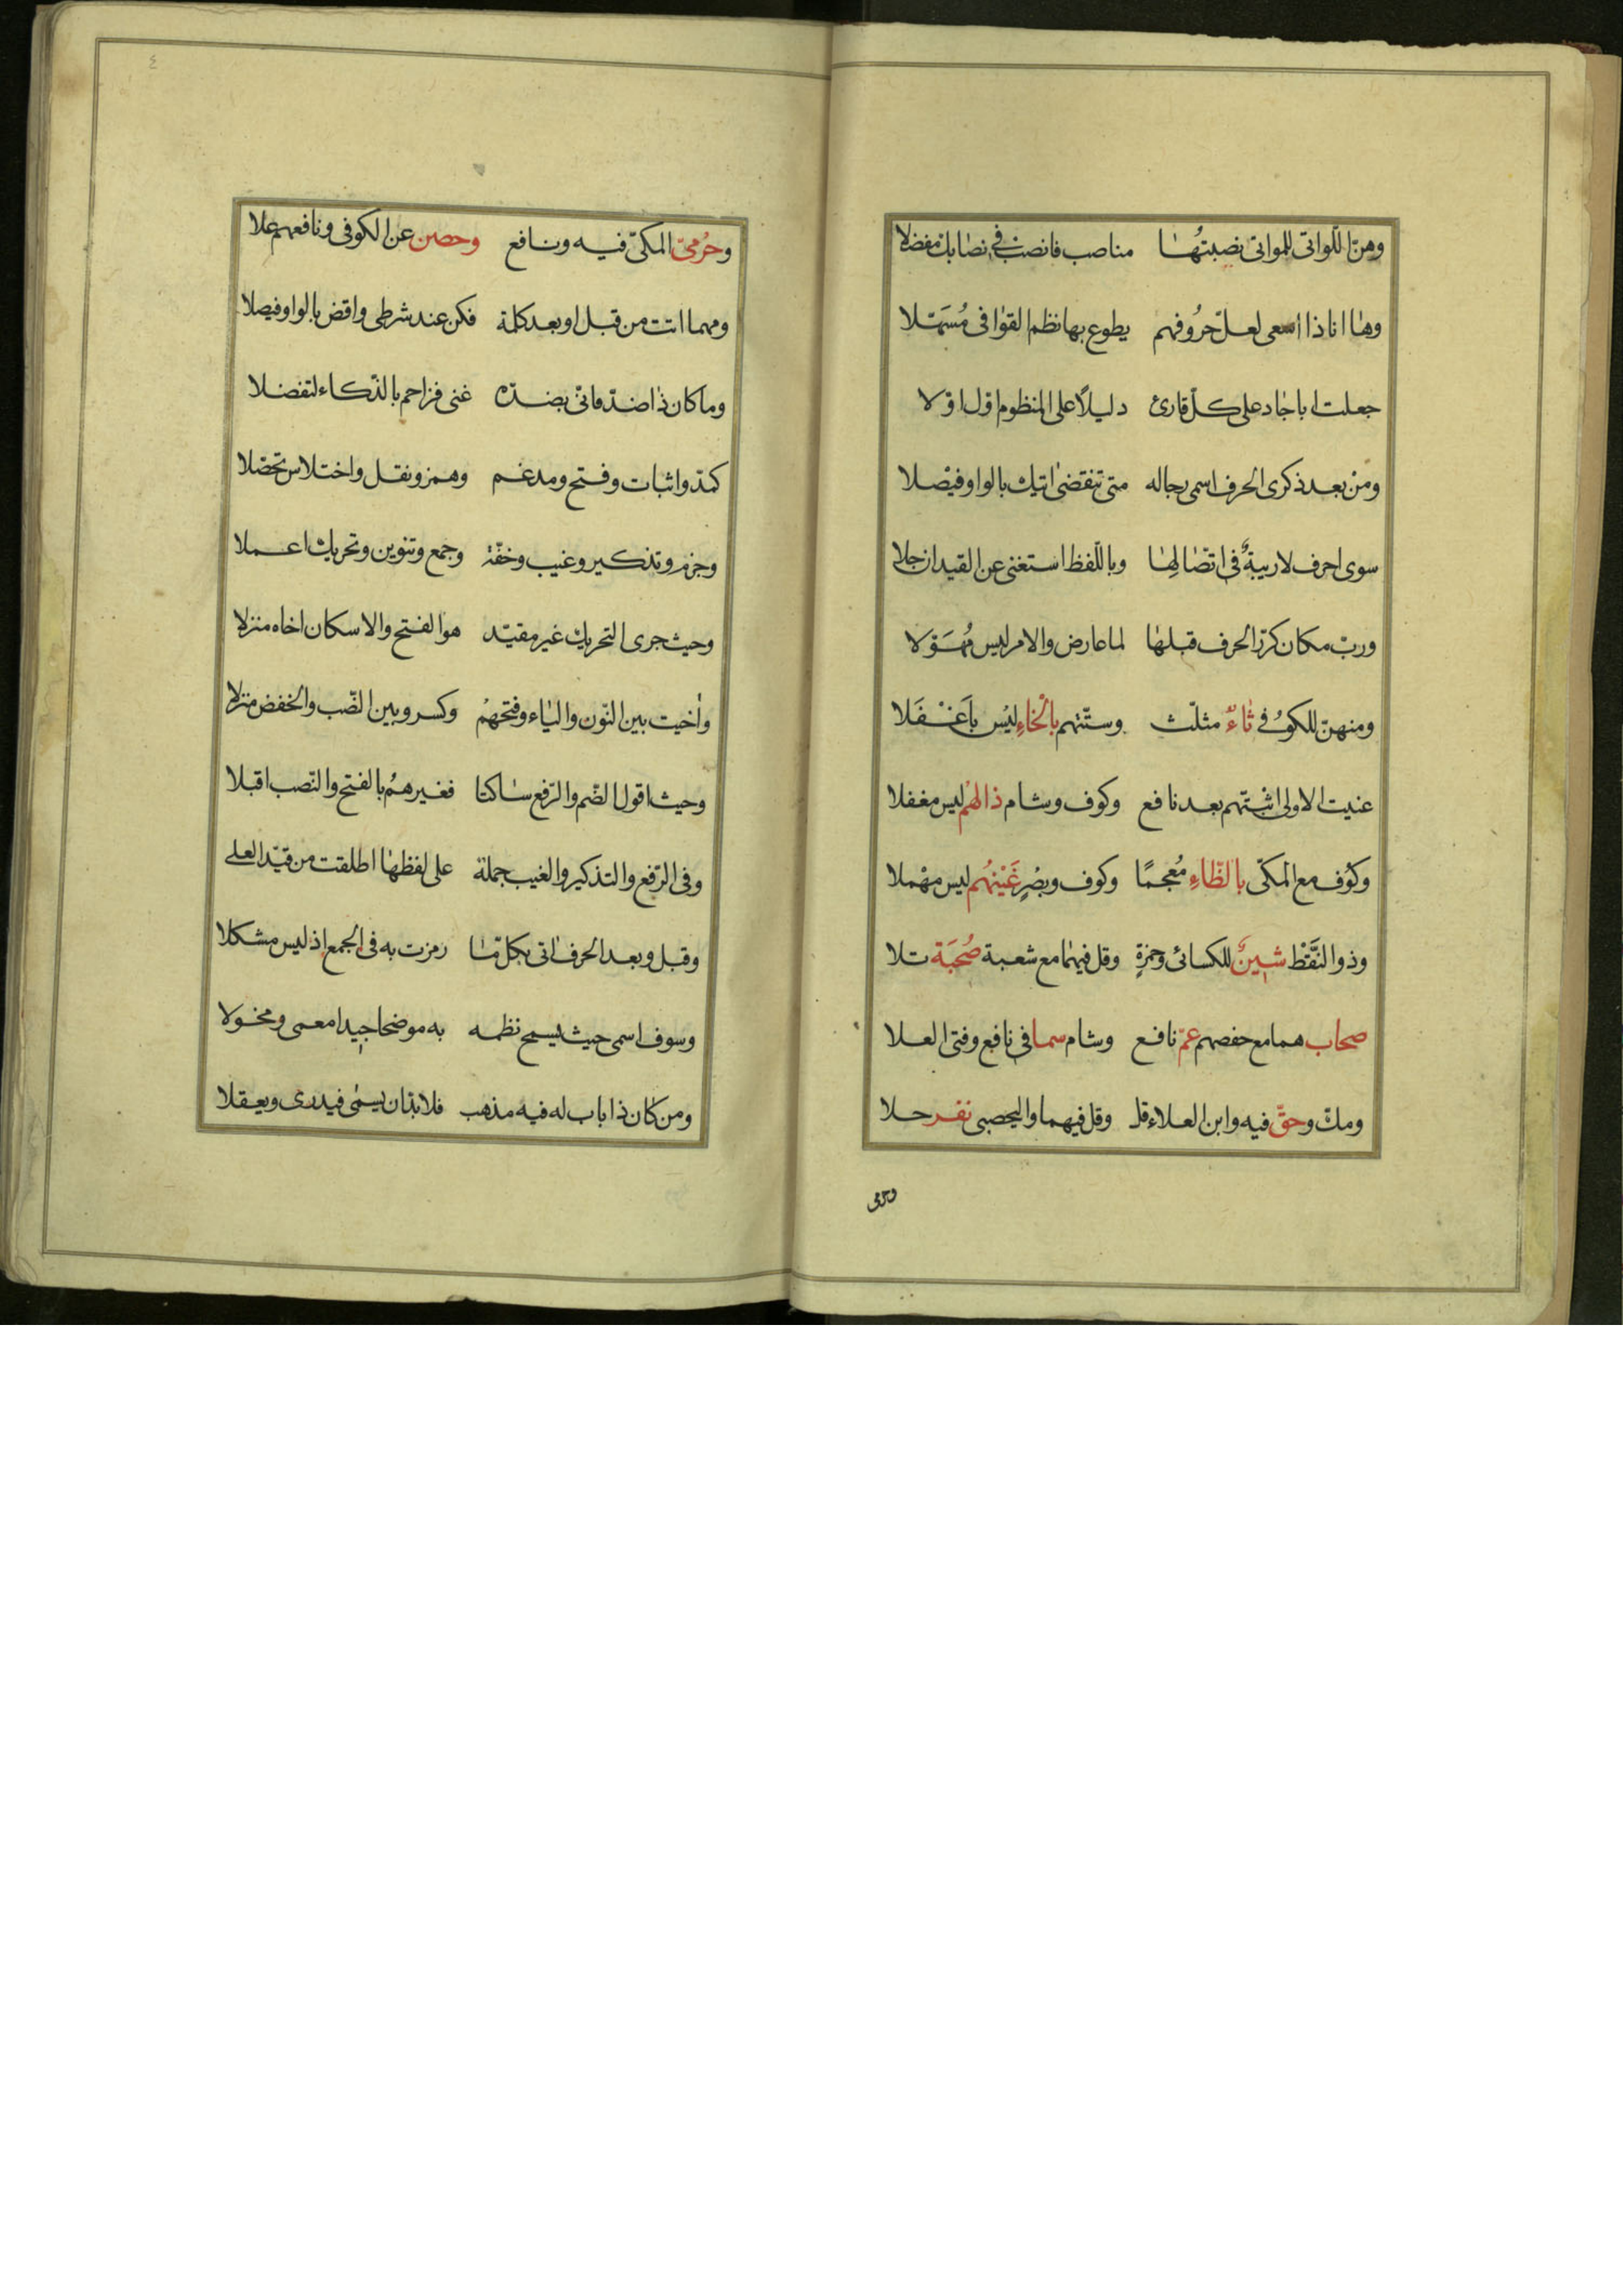 وهنّ اللّواتى للمواتى نصبتُها مناصب فانصب فى نصابك مفضلا
وها انا ذا اسعى لعلّ حرُوفهم يطوع بها نظم القوافى مُسَهّلا
جعلت اباجاد على كلّ قارئ دليلاً على المنظوم اوّل اوّلا
ومنْ بعد ذكرى الحرف اسمى رجاله متى تنقضى اتيك بالواو فيْصلا
سوى احرف لا ريبةٌ فى اتّصالها وباللّفظ استغنى عن القيد ان جلا
وربّ مكان كرّر الحرف قبلها لما عارض والامر ليس مُهَوّلا
ومنهنّ للكوُفى ثاءٌ مثلّث وستّتهم بالخاءِ ليْس باَغْفَلا
عنيت الاولى اثبتّهم بعد نافع وكوف وشام ذالهُم ليس مغفلا
وكوْف مع المكّى بالظّاءِ مُعجمًا وكوف وبصْرٍ غَيْنهُم ليس مهْملا
وذو النَّقْط شينٌ للكسائى وحمزةٍ وقل فيهما مع شعبة صُحْبَة تلا
صحاب هما مع حفصهم عمّ نافع وشام سما فى نافع وفتى العلا
ومكّ وحقّ فيه وابن العلاء قل وقل فيهما واليحصبى نفر حلا
وحرمى
٤
وحرُمىّ المكىّ فيه ونافع وحصن عن الكوفى ونافعهم علا
ومهما اتت من قبل او بعد كلمة فكن عند شرطى واقض بالواو فيصلا
وما كان ذا ضدّ فانّى بضدّه غنى فزاحم بالذّكاء لتفضلا
كمدّ واثبات وفتح ومدغم وهمز ونقل واختلاس تحصّلا
وجزم وتذكير وغيب وخفّة وجمع وتنوين وتحريك اعملا
وحيث جرى التحريك غير مقيّد هو الفتح والاسكان اخاه منزلا
واخيت بين النّون والياء وفتحهمْ وكسر وبين النّصب والخفض منزلا
وحيث اقول الضّم والرّفع ساكتا فغيرهمُ بالفتح والنّصب اقبلا
وفى الرّفع والتذكير والغيب جملة على لفظها اطلقت من قيّد العلى
وقبل وبعد الحرف اتى بكلّ ما رمزت به فى الجمع اذ ليس مشكلا
وسوف اسمى حيث يسمح نظمه به موضحا جيدا معمى ومخولا
ومن كان ذا باب له فيه مذهب فلا بدّ ان يسمّى فيدرى ويعقلا